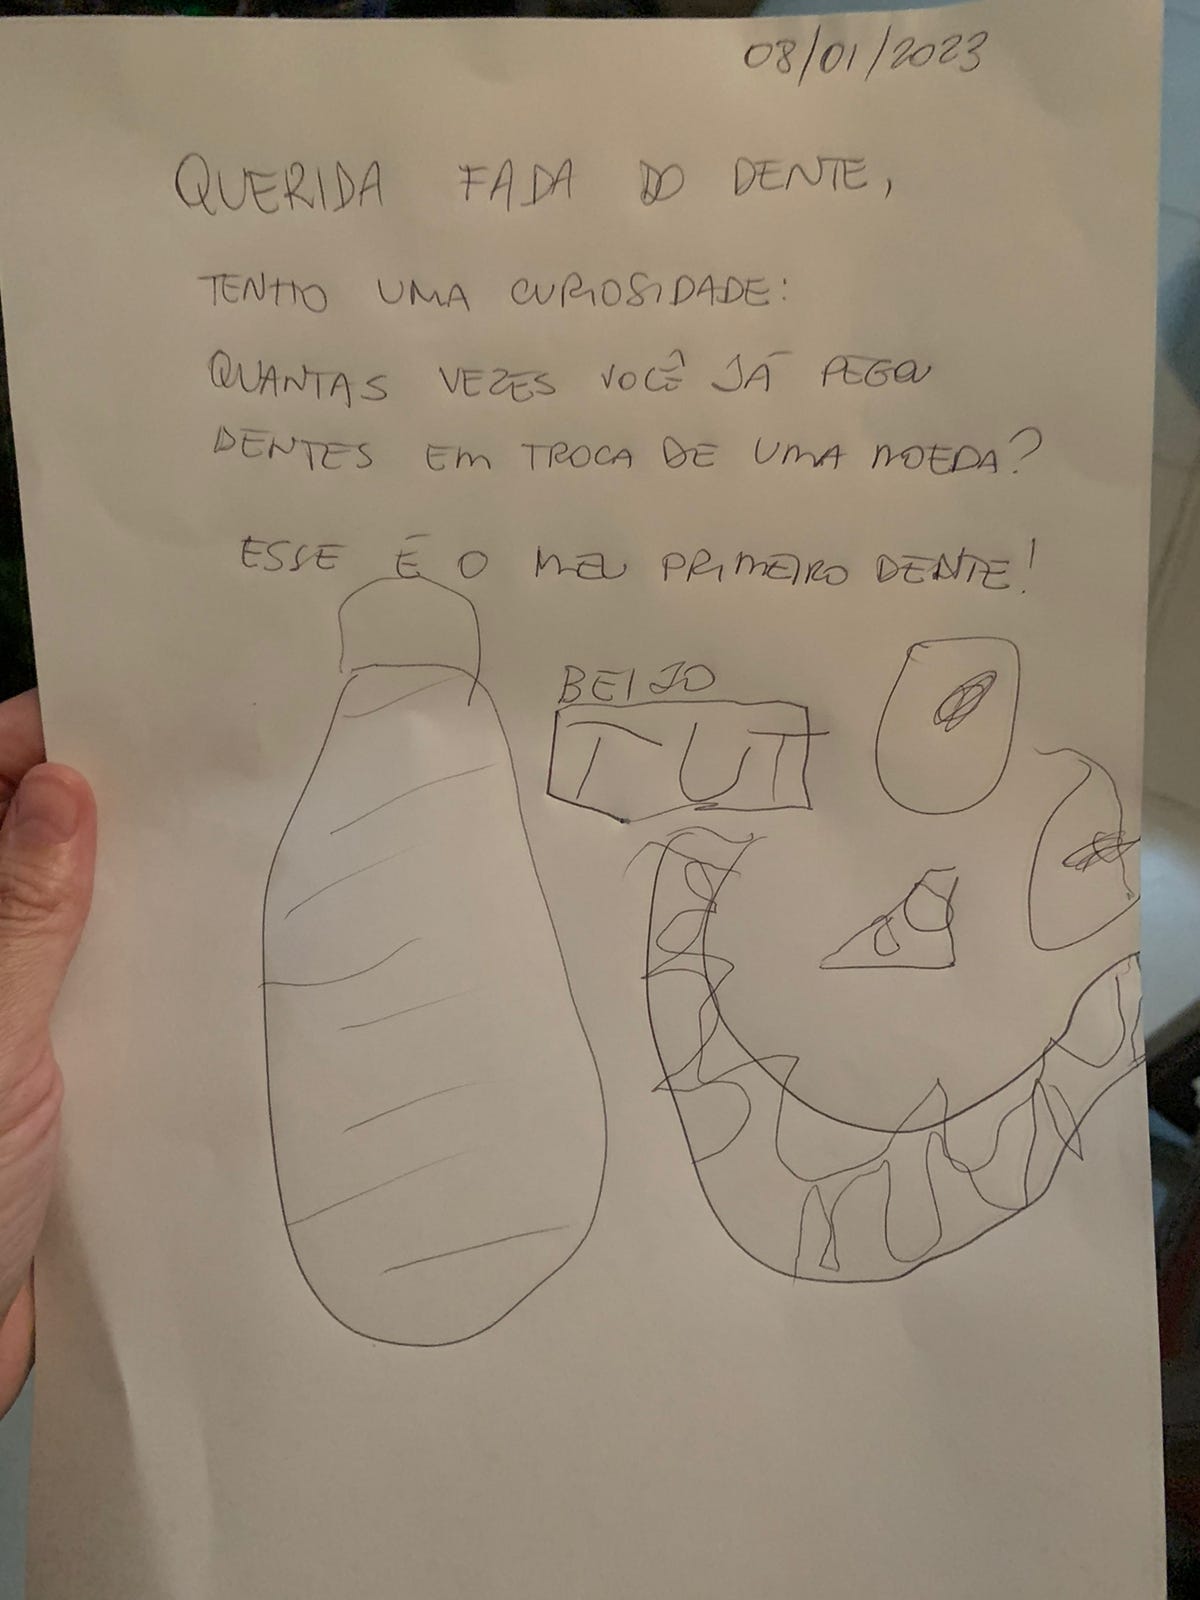 08/01/2023
QUERIDA FADA DO DENTE,
TENHO UMA CURIOSIDADE:
QUANTAS VEZES VOCÊ JÁ PEGOU
DENTES EM TROCA DE UMA MOEDA?
ESSE É O MEU PRIMEIRO DENTE!
BEIJO
TUT